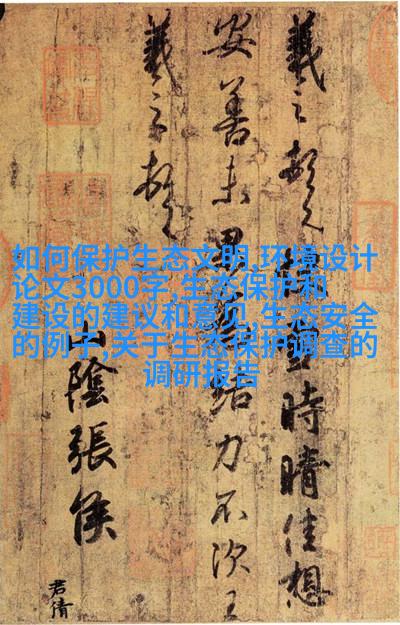 羲之頓首快雪時晴佳想
安善未果為結力不次王
羲之頓首
山陰張侯
君倩
如何保护生态文明,环境设计
论文3000字,生态保护和
建设的建议和意见,生态安全
的例子,关于生态保护调查的
调研报告